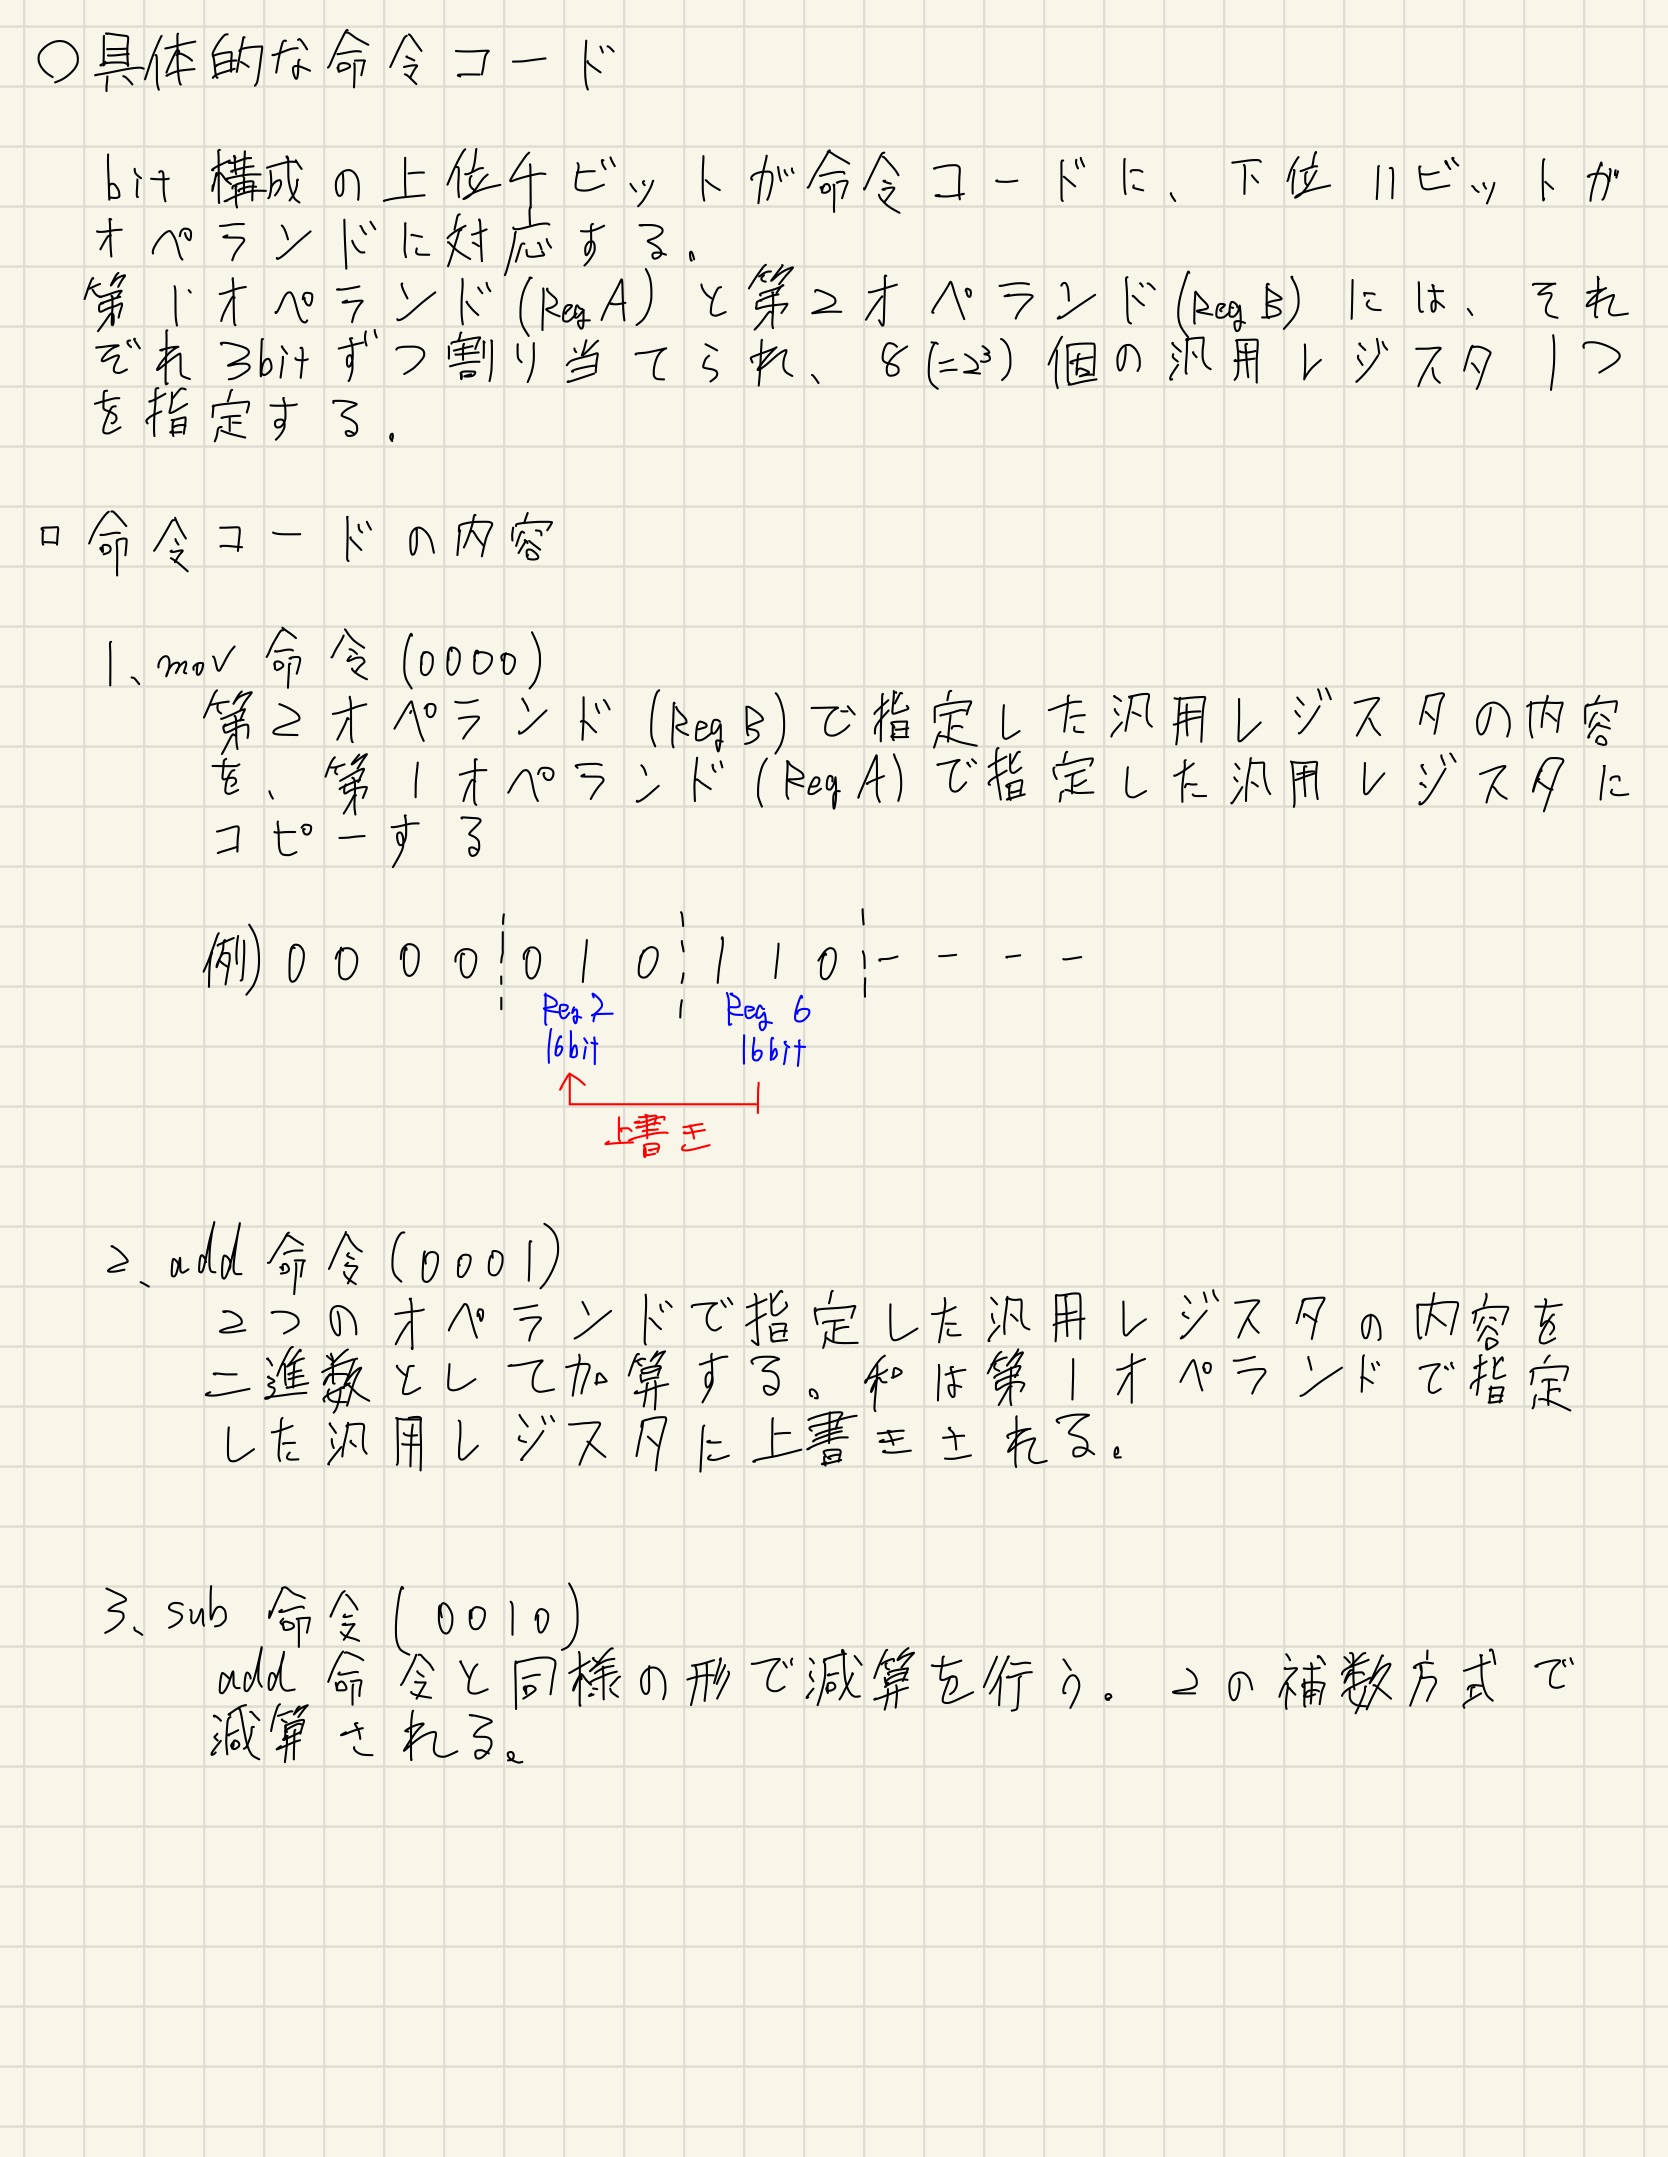 ○具体的な命令コード
bit構成の上位4ビットが命令コードに、下位11ビットが
オペランドに対応する。
第1オペランド(Reg A)と第2オペランド(Reg B)には、それ
ぞれ3bitずつ割り当てられ、8(=2³)個の汎用レジスタ1つ
を指定する.
□命令コードの内容
1、mov命令(0000)
第2オペランド(Reg B)で指定した汎用レジスタの内容
を、第1オペランド(Reg A)で指定した汎用レジスタに
コピーする
例) 0 0 0 0 0 1 0 1 1 0 - - - -
Reg 2 Reg 6
16bit 16bit
上書き
2、add命令(0001)
2つのオペランドで指定した汎用レジスタの内容を
二進数として加算する。和は第1オペランドで指定
した汎用レジスタに上書きされる。
3、sub命令(0010)
add命令と同様の形で減算を行う。2の補数方式で
減算される。